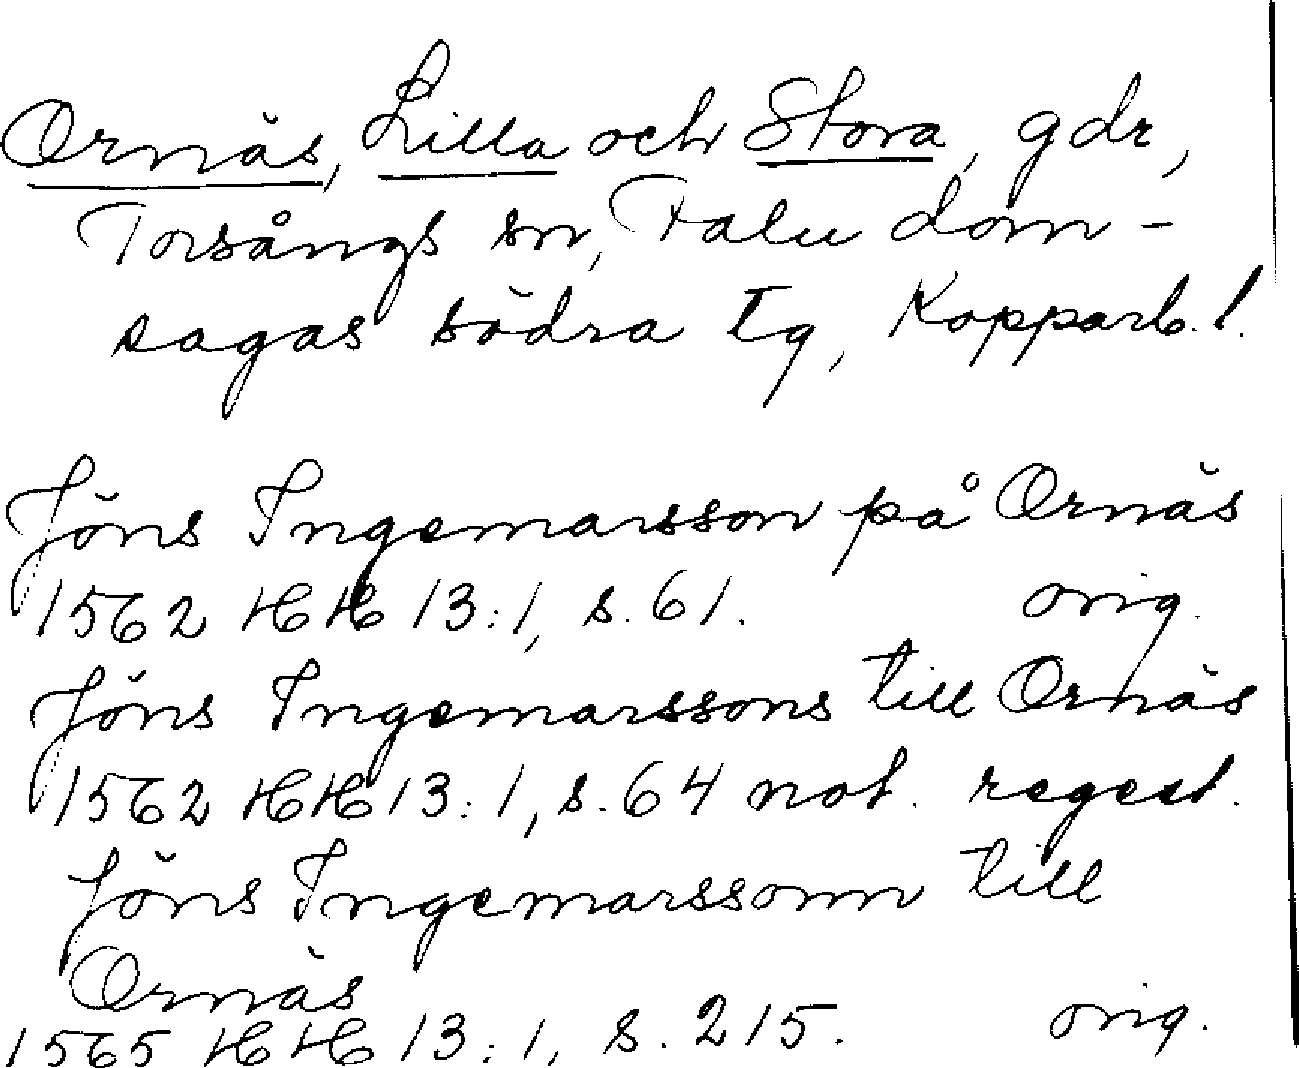 Ornäs, Lilla och Stora, gdr,
Torsångs sn, Falu dom-
sagas södra tg, Kopparb. l.
Jöns Ingemarsson på Ornäs
1562 HH 13:1, s. 61. orig.
Jöns Ingemarssons till Ornäs
1562 HH 13:1, s. 64 not. regest.
Jöns Ingemarssonn till
Ornäs
1565 HH 13:1, s. 215. orig.